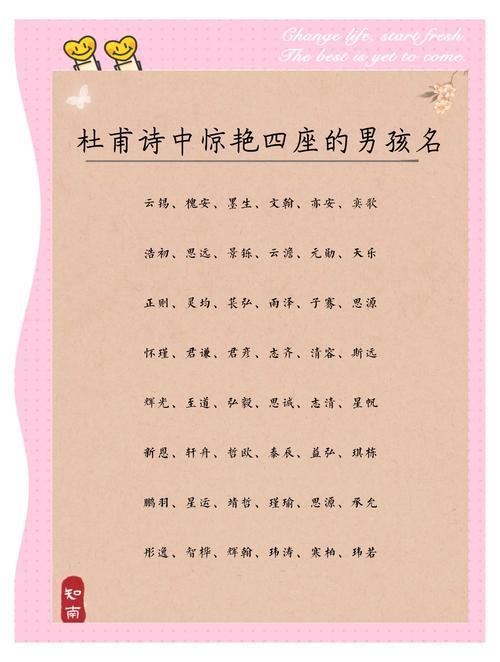 Change life, start fresh.
The best is yet to come.
杜甫诗中惊艳四座的男孩名
云锡、槐安、墨生、文翰、亦安、奕歌
浩初、思远、景铄、云澹、元勋、天乐
正则、灵均、苌弘、雨泽、子骞、思源
怀瑾、君谦、君彦、志齐、清容、斯远
辉光、至道、弘毅、思诚、志清、星帆
新恩、轩舟、哲欧、泰辰、益弘、琪栋
鹏羽、星运、靖哲、瑾瑜、思源、承允
彤逸、智桦、辉翰、玮涛、寒柏、玮若
知南